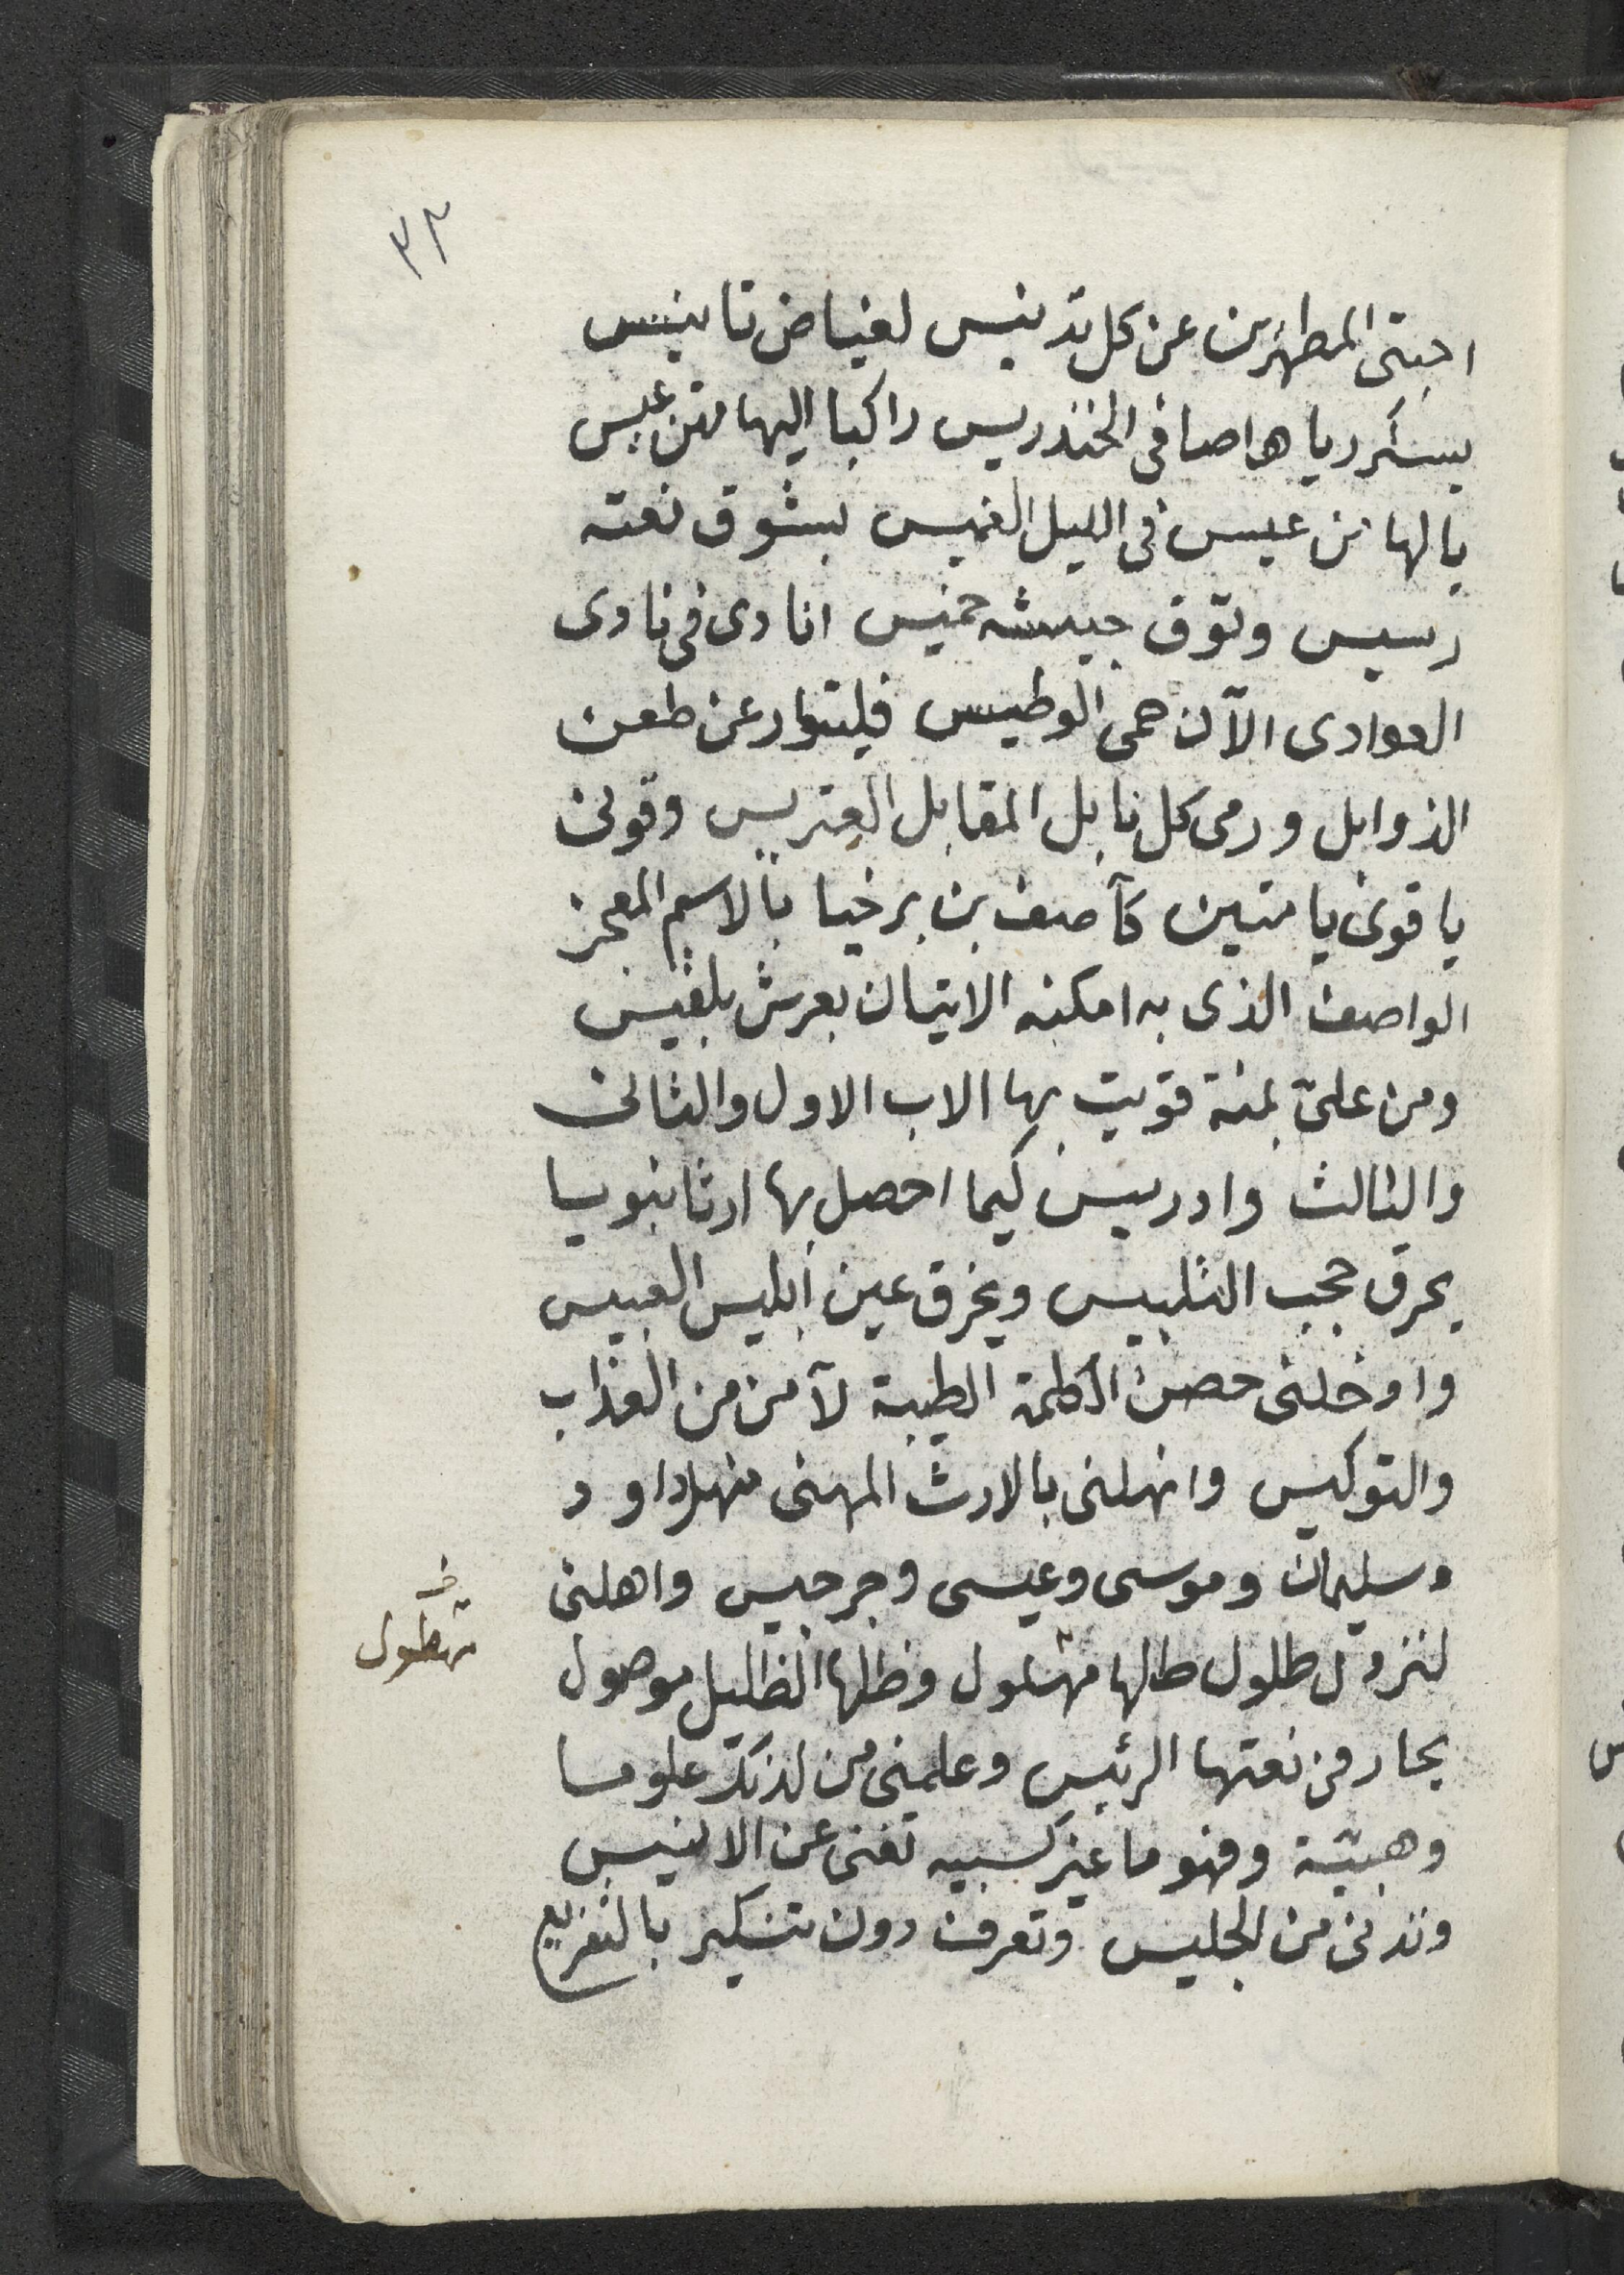 ٣٣
احبتى المطهرين عن كل تدنيس لغياض تانيس
بسكر رياها صافى الخندريس راكبا اليها متن عيس
يا لها من عيس فى الليل الغميس بشوق نعته
رسيس وتوق جيشه خميس انادى فى نادى
العوادى الآن حمى الوطيس فليتوار عن طعن
الذوابل ورمى كل نابل المقابل العتريس وقونى
يا قوى يا متين كآصف بن برخيا بالاسم المعجز
الواصف الذى به امكنه الاتيان بعرش بلقيس
ومن علىّ بمنة قويت بها الاب الاول والثانى
والثالث وادريس كيما احصل بها ارثا نبويا
يحرق حجب التلبيس ويخرق عين ابليس العبيس
وادخلنى حصن الكلمة الطيبة لآمن من العذاب
والتوكيس وانهلنى بالارث المهنى منهل داود
وسليمان وموسى وعيسى وجرجيس واهلنى
لنزول طلول طلها مهلول وظلها الظليل موصول
خـ
مهطول
يحار فى نعتها الرئيس وعلمنى من لدنك علوما
وهبيّة وفهوما غير كسبيه تغنى عن الانيس
وتدنى من الجليس وتعرف دون تنكير بالتفريع